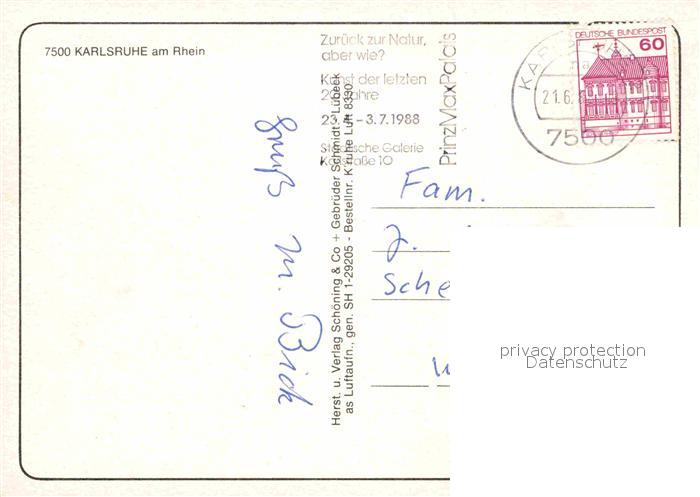 7500 KARLSRUHE am Rhein
Zurück zur Natur,
aber wie?
Kunst der letzten
20 Jahre
23.4.–3.7.1988
Städtische Galerie
Karlstraße 10
PrinzMaxPalais
KARLSRUHE
21.6.
7500
DEUTSCHE BUNDESPOST
60
Gruß
M. Bick
Herst. u. Verlag Schöning & Co + Gebrüder Schmidt - Lübeck
as Luftaufn., gen. SH 1-29205 - Bestellnr. K'ruhe Luft 8390
Fam.
J.
Sche
privacy protection
Datenschutz